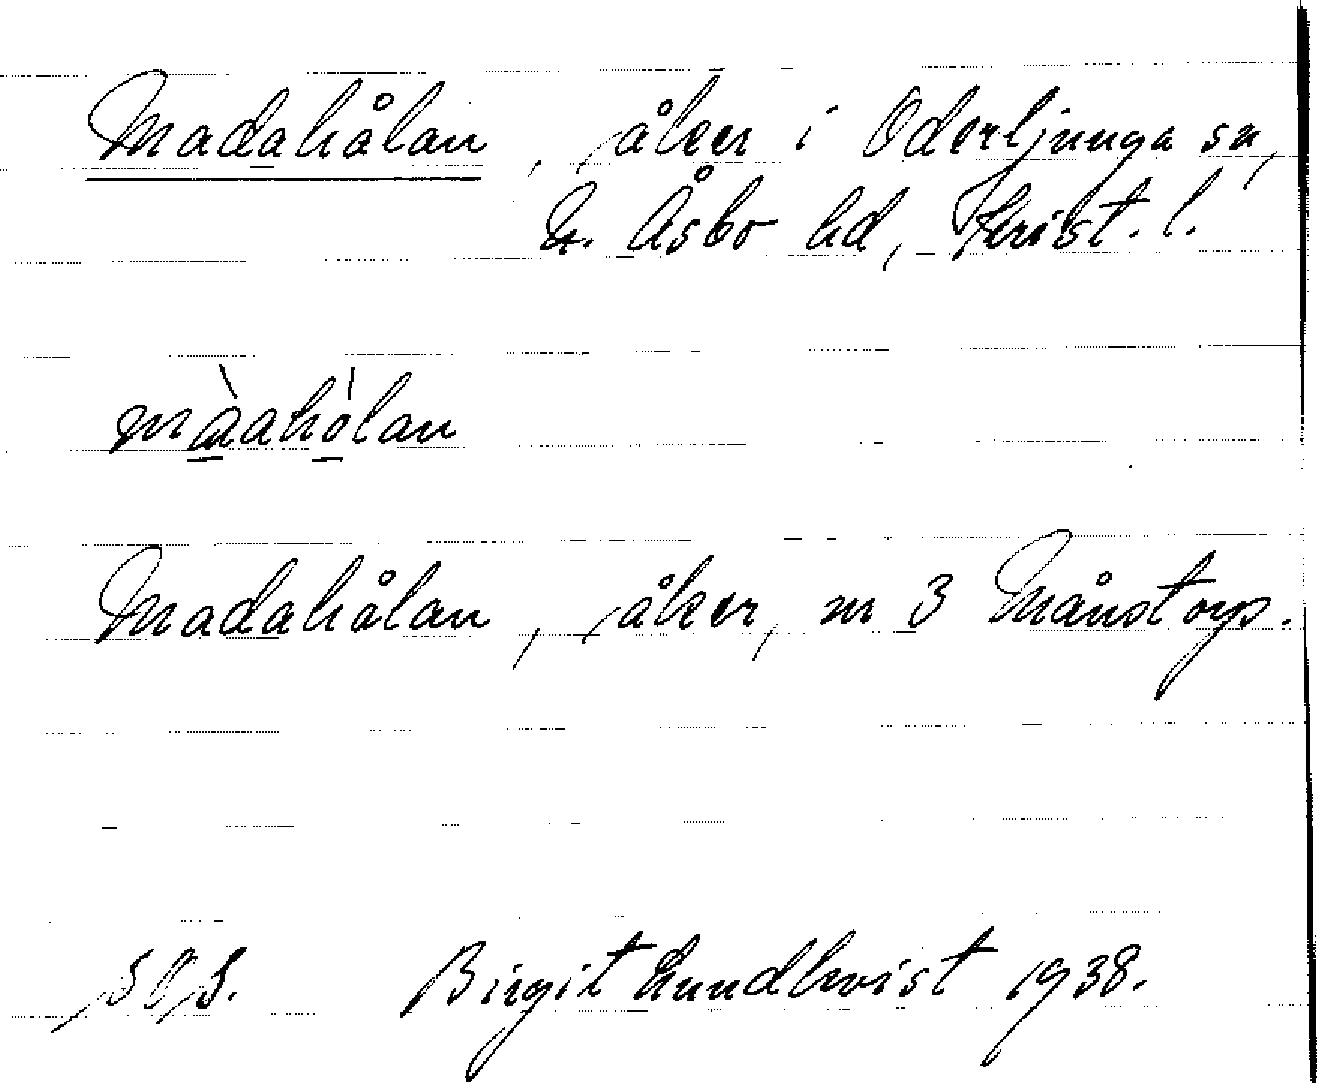 Madahålan, åker i Oderljunga sn,
N. Åsbo hd, Krist. l.
màahólan
Madahålan, åker, nr 3 Månstorp.
Birgit Lundkvist 1938.